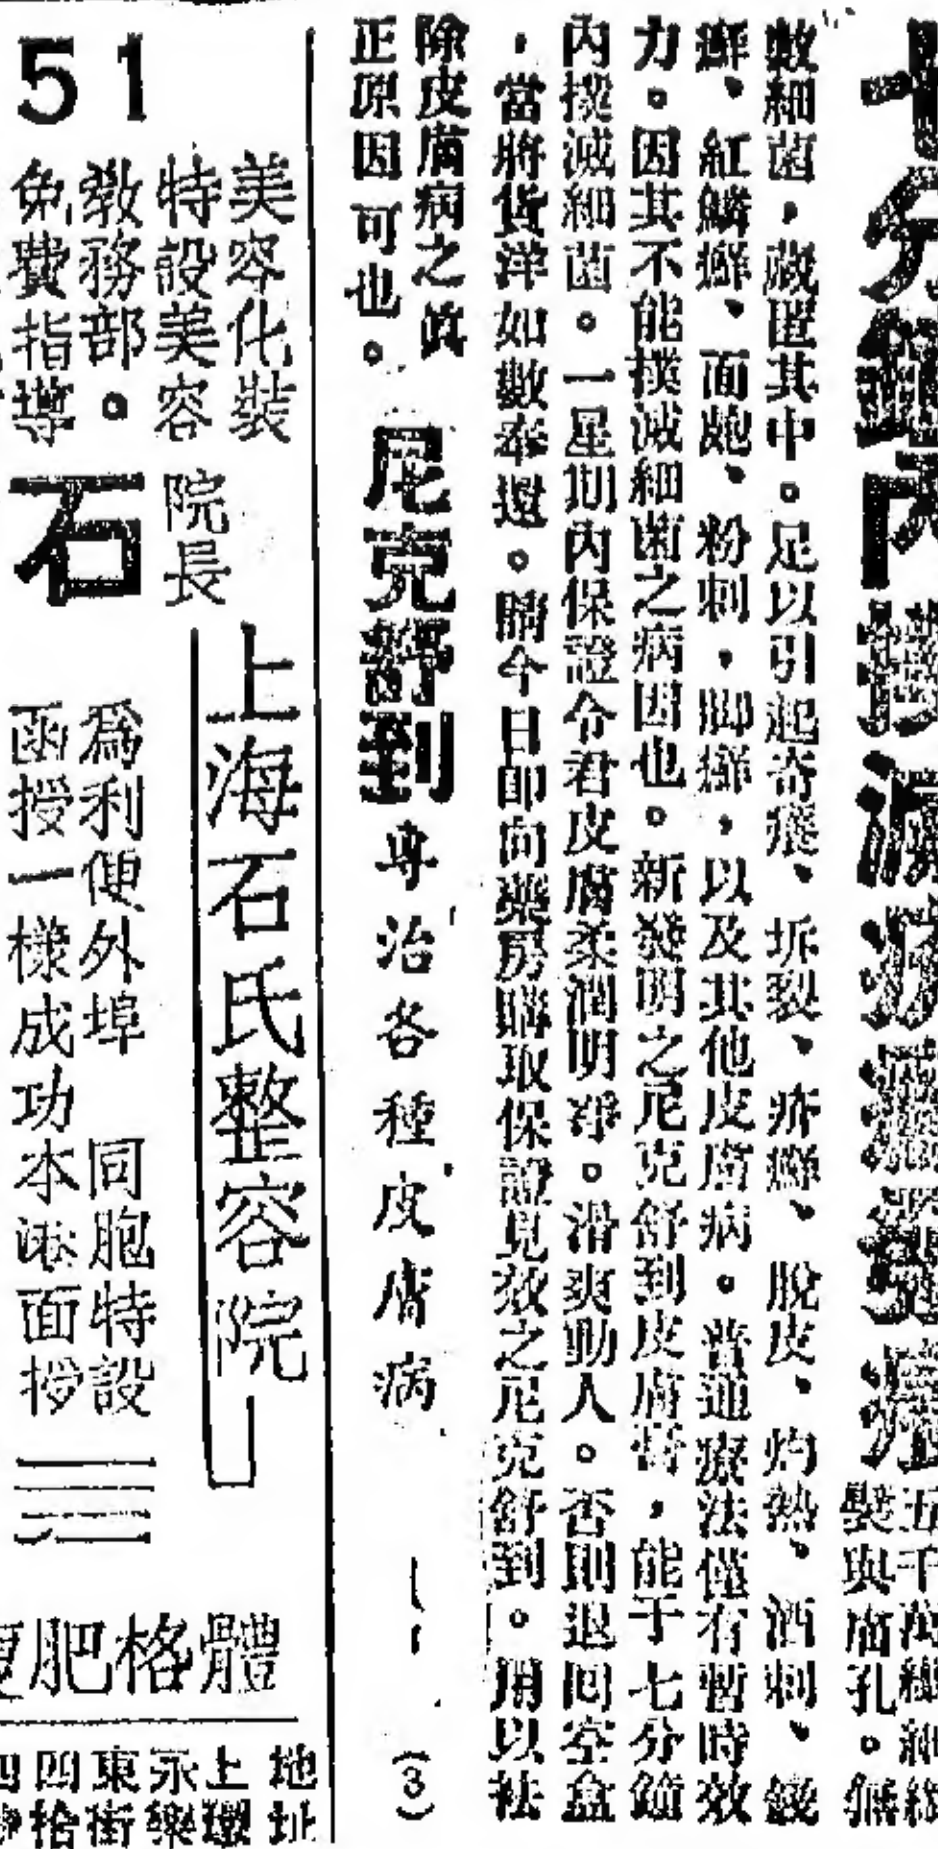 七分鐘內撲滅
五千萬
襞與膚孔。無
數細菌，藏匿其中。足以引起奇癢、坼裂、疥癬、脫皮、灼熱、酒刺、錢
癬、紅鱗癬、面皰、粉刺，脚癬，以及其他皮膚病。普通療法僅有暫時效
力。因其不能撲滅細菌之病因也。新發明之尼克舒到皮膚膏，能于七分鐘
內撲滅細菌。一星期內保證令君皮膚柔潤明淨。滑爽動人。否則退回空盒
，當將貨洋如數奉還。請今日即向藥房購取保證見效之尼克舒到。用以祛
除皮膚病之眞
正原因可也。
尼克舒到 專治各種皮膚病 (3)
上海石氏整容院
院長
石
美容化裝
特設美容
教務部。
免費指導
51
爲利便外埠 同胞特設
函授一樣成功本港面授
體格肥
地址
上環
永樂
東街
四拾
四